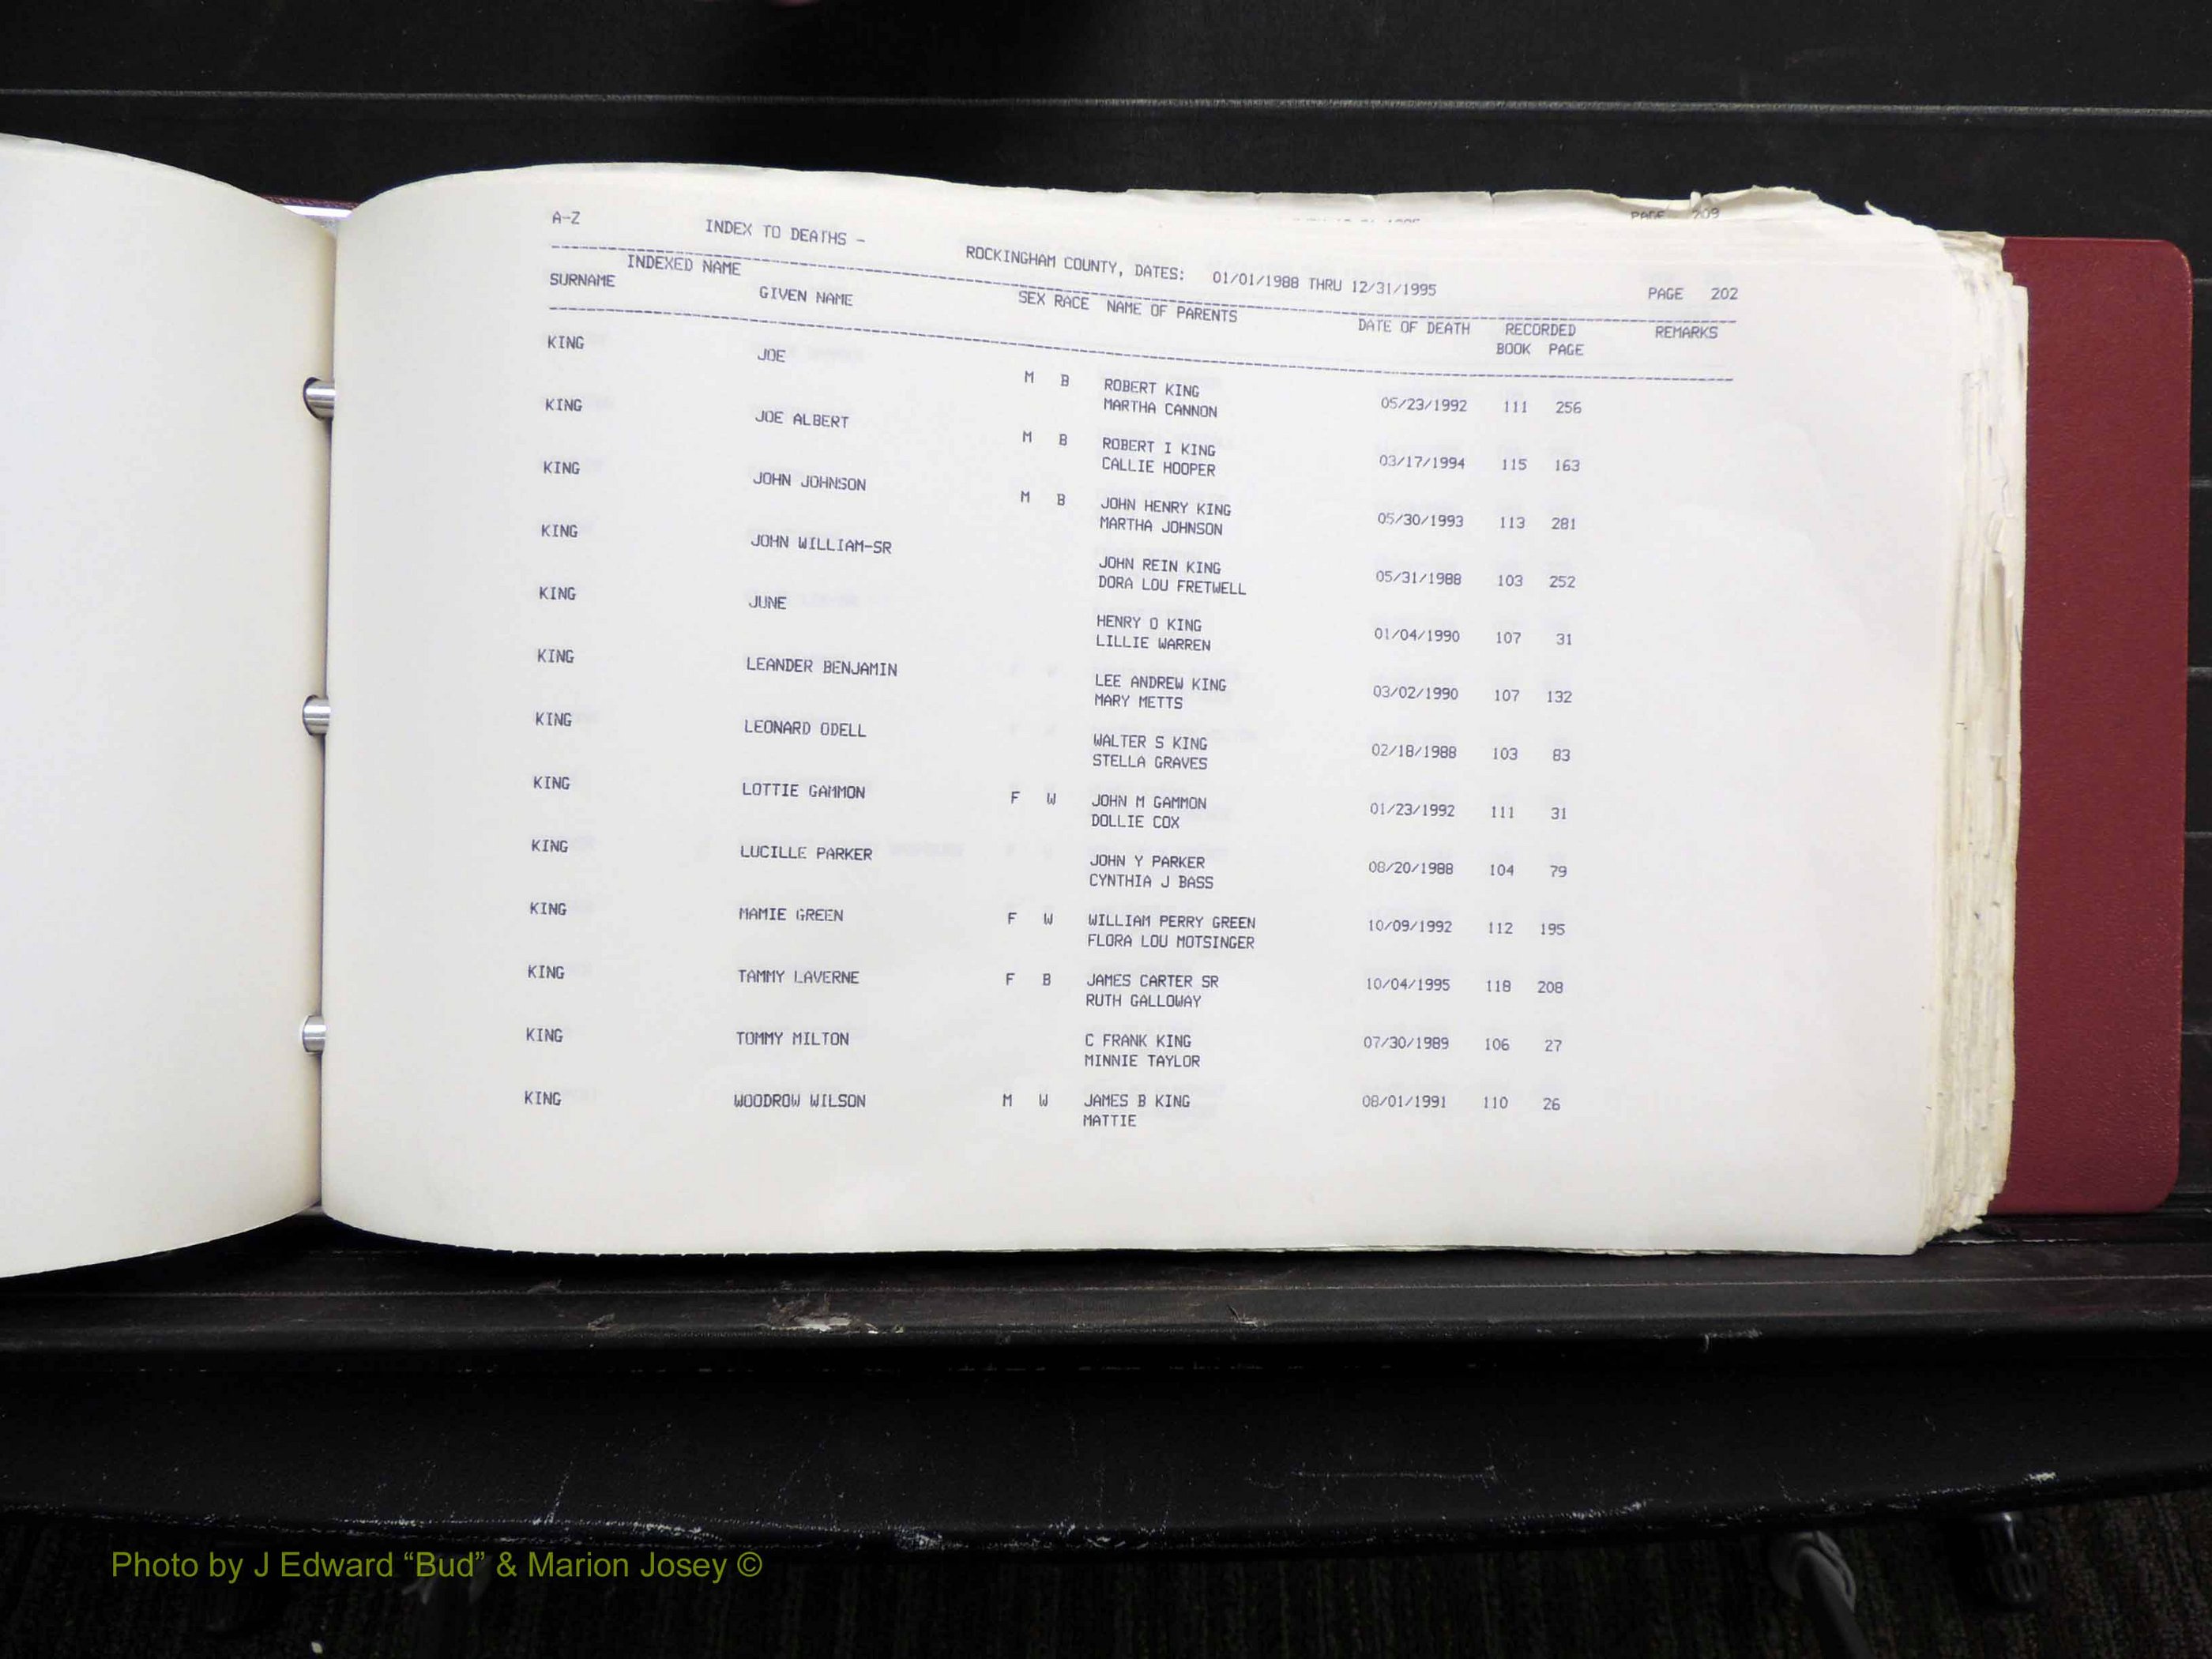 PAGE 209
A-Z INDEX TO DEATHS - ROCKINGHAM COUNTY, DATES: 01/01/1988 THRU 12/31/1995 PAGE 202
INDEXED NAME
SURNAME GIVEN NAME SEX RACE NAME OF PARENTS DATE OF DEATH RECORDED REMARKS
BOOK PAGE
KING JOE M B ROBERT KING 05/23/1992 111 256
MARTHA CANNON
KING JOE ALBERT M B ROBERT I KING 03/17/1994 115 163
CALLIE HOOPER
KING JOHN JOHNSON M B JOHN HENRY KING 05/30/1993 113 281
MARTHA JOHNSON
KING JOHN WILLIAM-SR JOHN REIN KING 05/31/1988 103 252
DORA LOU FRETWELL
KING JUNE HENRY O KING 01/04/1990 107 31
LILLIE WARREN
KING LEANDER BENJAMIN LEE ANDREW KING 03/02/1990 107 132
MARY METTS
KING LEONARD ODELL WALTER S KING 02/18/1988 103 83
STELLA GRAVES
KING LOTTIE GAMMON F W JOHN M GAMMON 01/23/1992 111 31
DOLLIE COX
KING LUCILLE PARKER JOHN Y PARKER 08/20/1988 104 79
CYNTHIA J BASS
KING MAMIE GREEN F W WILLIAM PERRY GREEN 10/09/1992 112 195
FLORA LOU MOTSINGER
KING TAMMY LAVERNE F B JAMES CARTER SR 10/04/1995 118 208
RUTH GALLOWAY
KING TOMMY MILTON C FRANK KING 07/30/1989 106 27
MINNIE TAYLOR
KING WOODROW WILSON M W JAMES B KING 08/01/1991 110 26
MATTIE
Photo by J Edward “Bud” & Marion Josey ©